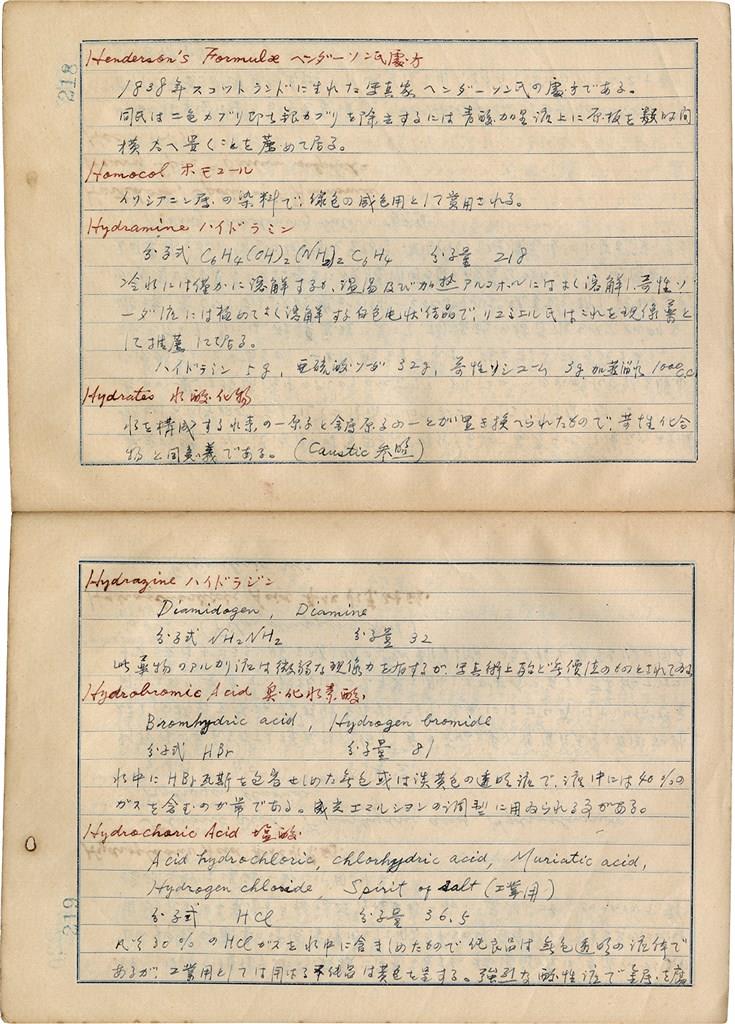 218
Henderson's Formulæ ヘンダーソン氏處方
1838年スコットランドに生れた写真家ヘンダーソン氏の處方である。
同氏は二色カブリ即ち銀カブリを除去するには青酸加里液上に原板を数時間
横たへ置くことを薦めて居る。
Homocol ホモコール
イソシアニン属の染料で、緑色の感色用として賞用される。
Hydramine ハイドラミン
分子式 C6H4(OH)2(NH2)2C6H4 分子量 218
冷水には僅かに溶解するが、温湯及び加熱アルコホルにはよく溶解し、苛性ソ
ーダ液には極めてよく溶解する白色 状結品で、リユミエル氏はこれを現像薬と
して推薦して居る。
ハイドラミン 5g, 亜硫酸ソーダ 32g, 苛性リシューム 3g 加蒸溜水 1000c.c.
Hydrates 水酸化物
水を構成する水素の一原子と金属原子の一とが置き換へられたもので、苛性化合
物と同意義である。 (Caustic 参照)
Hydrazine ハイドラジン
Diamidogen, Diamine
分子式 NH2NH2 分子量 32
此薬物のアルカリ液は微弱な現像力を有するが、写真術上殆ど無價値のものとされてゐる
Hydrobromic Acid 臭化水素酸
Bromhydric acid, Hydrogen bromide
分子式 HBr 分子量 81
水中にHBr瓦斯を包含せしめた無色或は淡黄色の透明液で、液中には40%の
ガスを含むのが常である。感光エマルションの調 に用ゐられる事がある。
Hydrochoric Acid 塩酸
Acid hydrochloric, chlorhydric acid, Muriatic acid,
Hydrogen chloride, Spirit of salt (工業用)
分子式 HCl 分子量 36.5
凡そ30%のHClガスを水中に含ましめたもので純良品は無色透明の液体で
あるが、工業用として用ふる不純品は黄色を呈する。強烈な酸性液で金属を腐
219